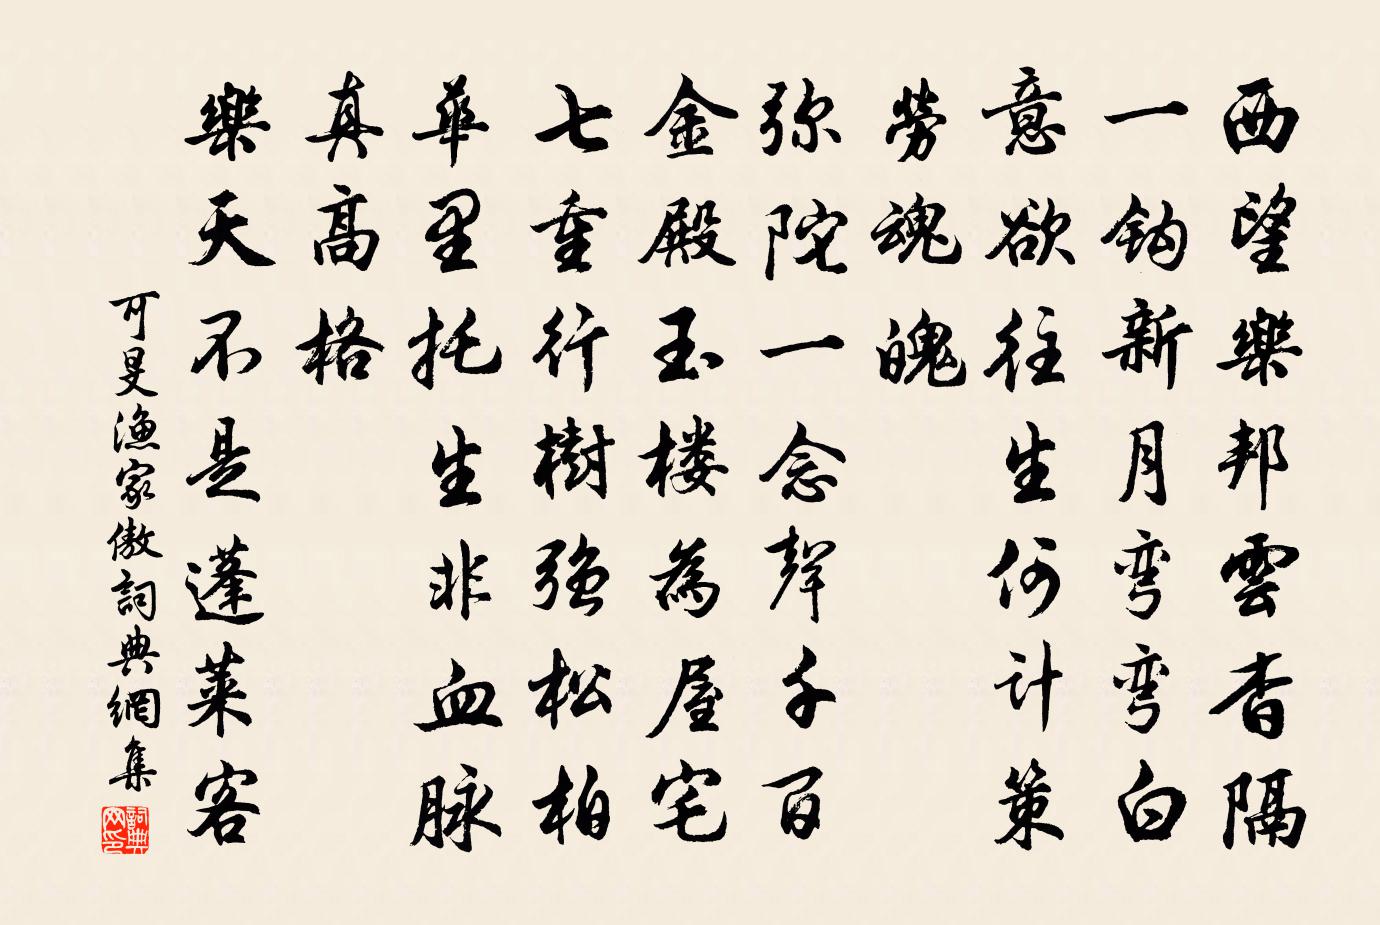 西望樂邦雲杳隔
一鈎新月弯弯白
意欲往生何计策
勞魂魄
弥陀一念聲千百
金殿玉楼為屋宅
七重行樹强松柏
華里托生非血脉
真高格
樂天不是蓬莱客
可旻漁家傲詞典網集
詞典网印